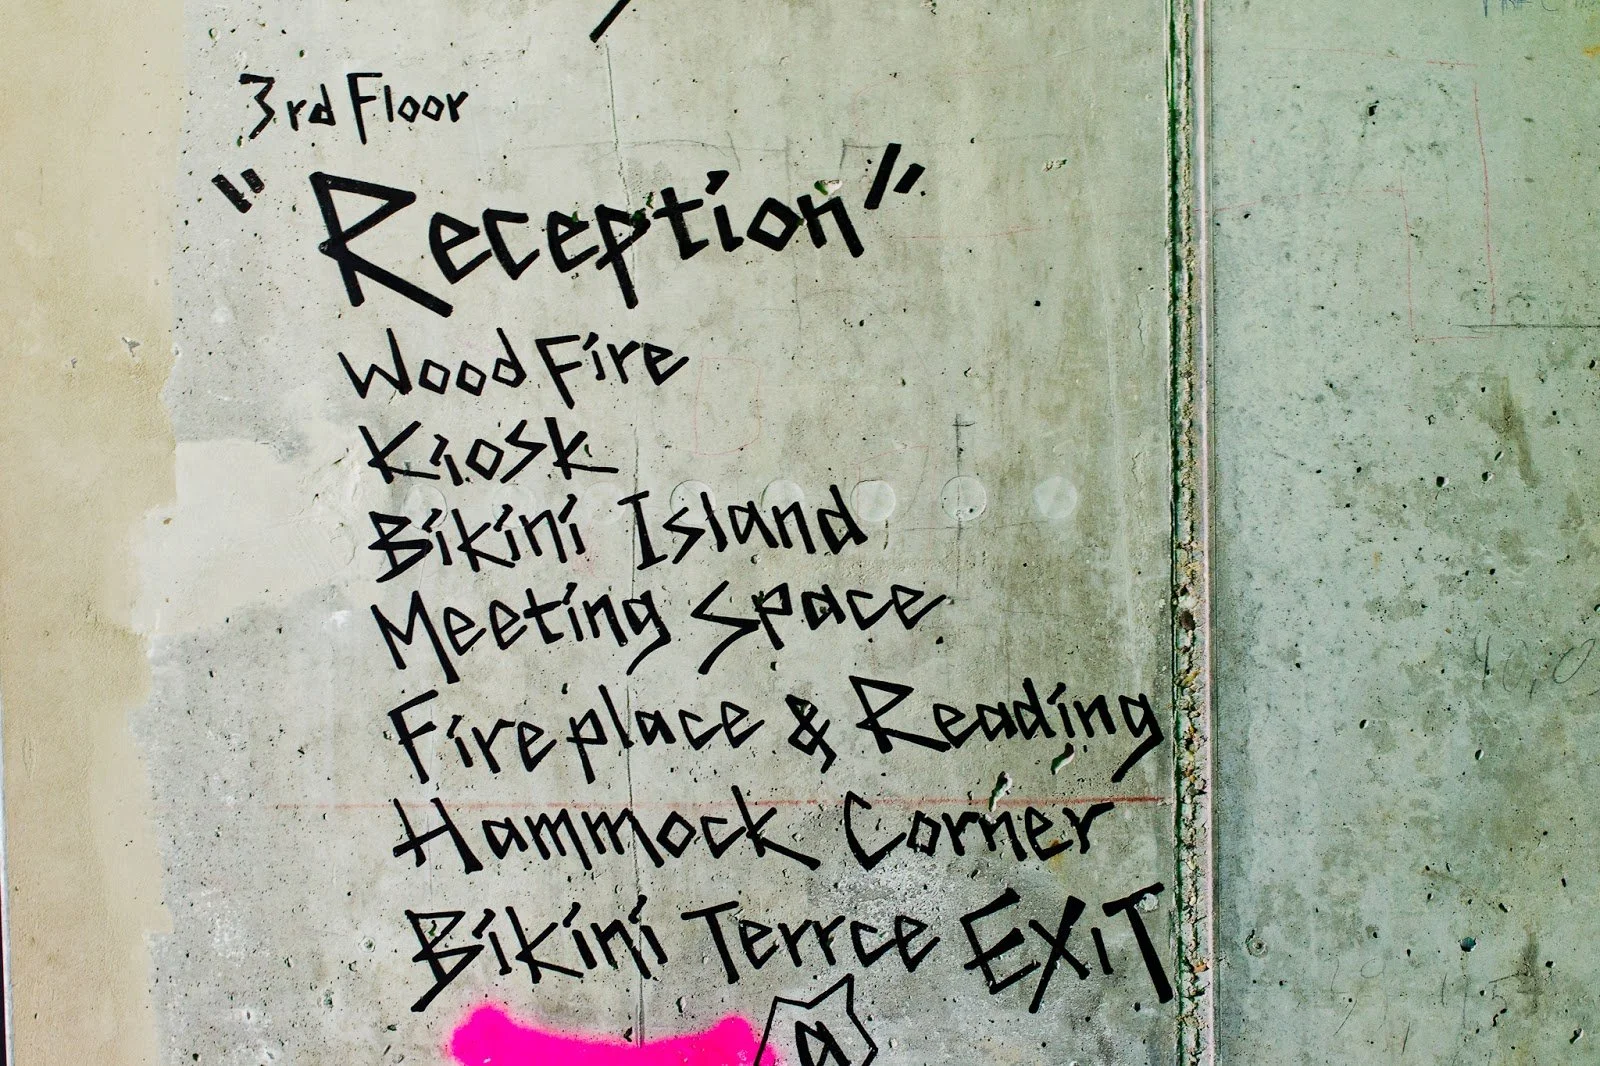 3rd Floor
"Reception"
Wood Fire
Kiosk
Bikini Island
Meeting Space
Fireplace & Reading
Hammock Corner
Bikini Terrce EXiT